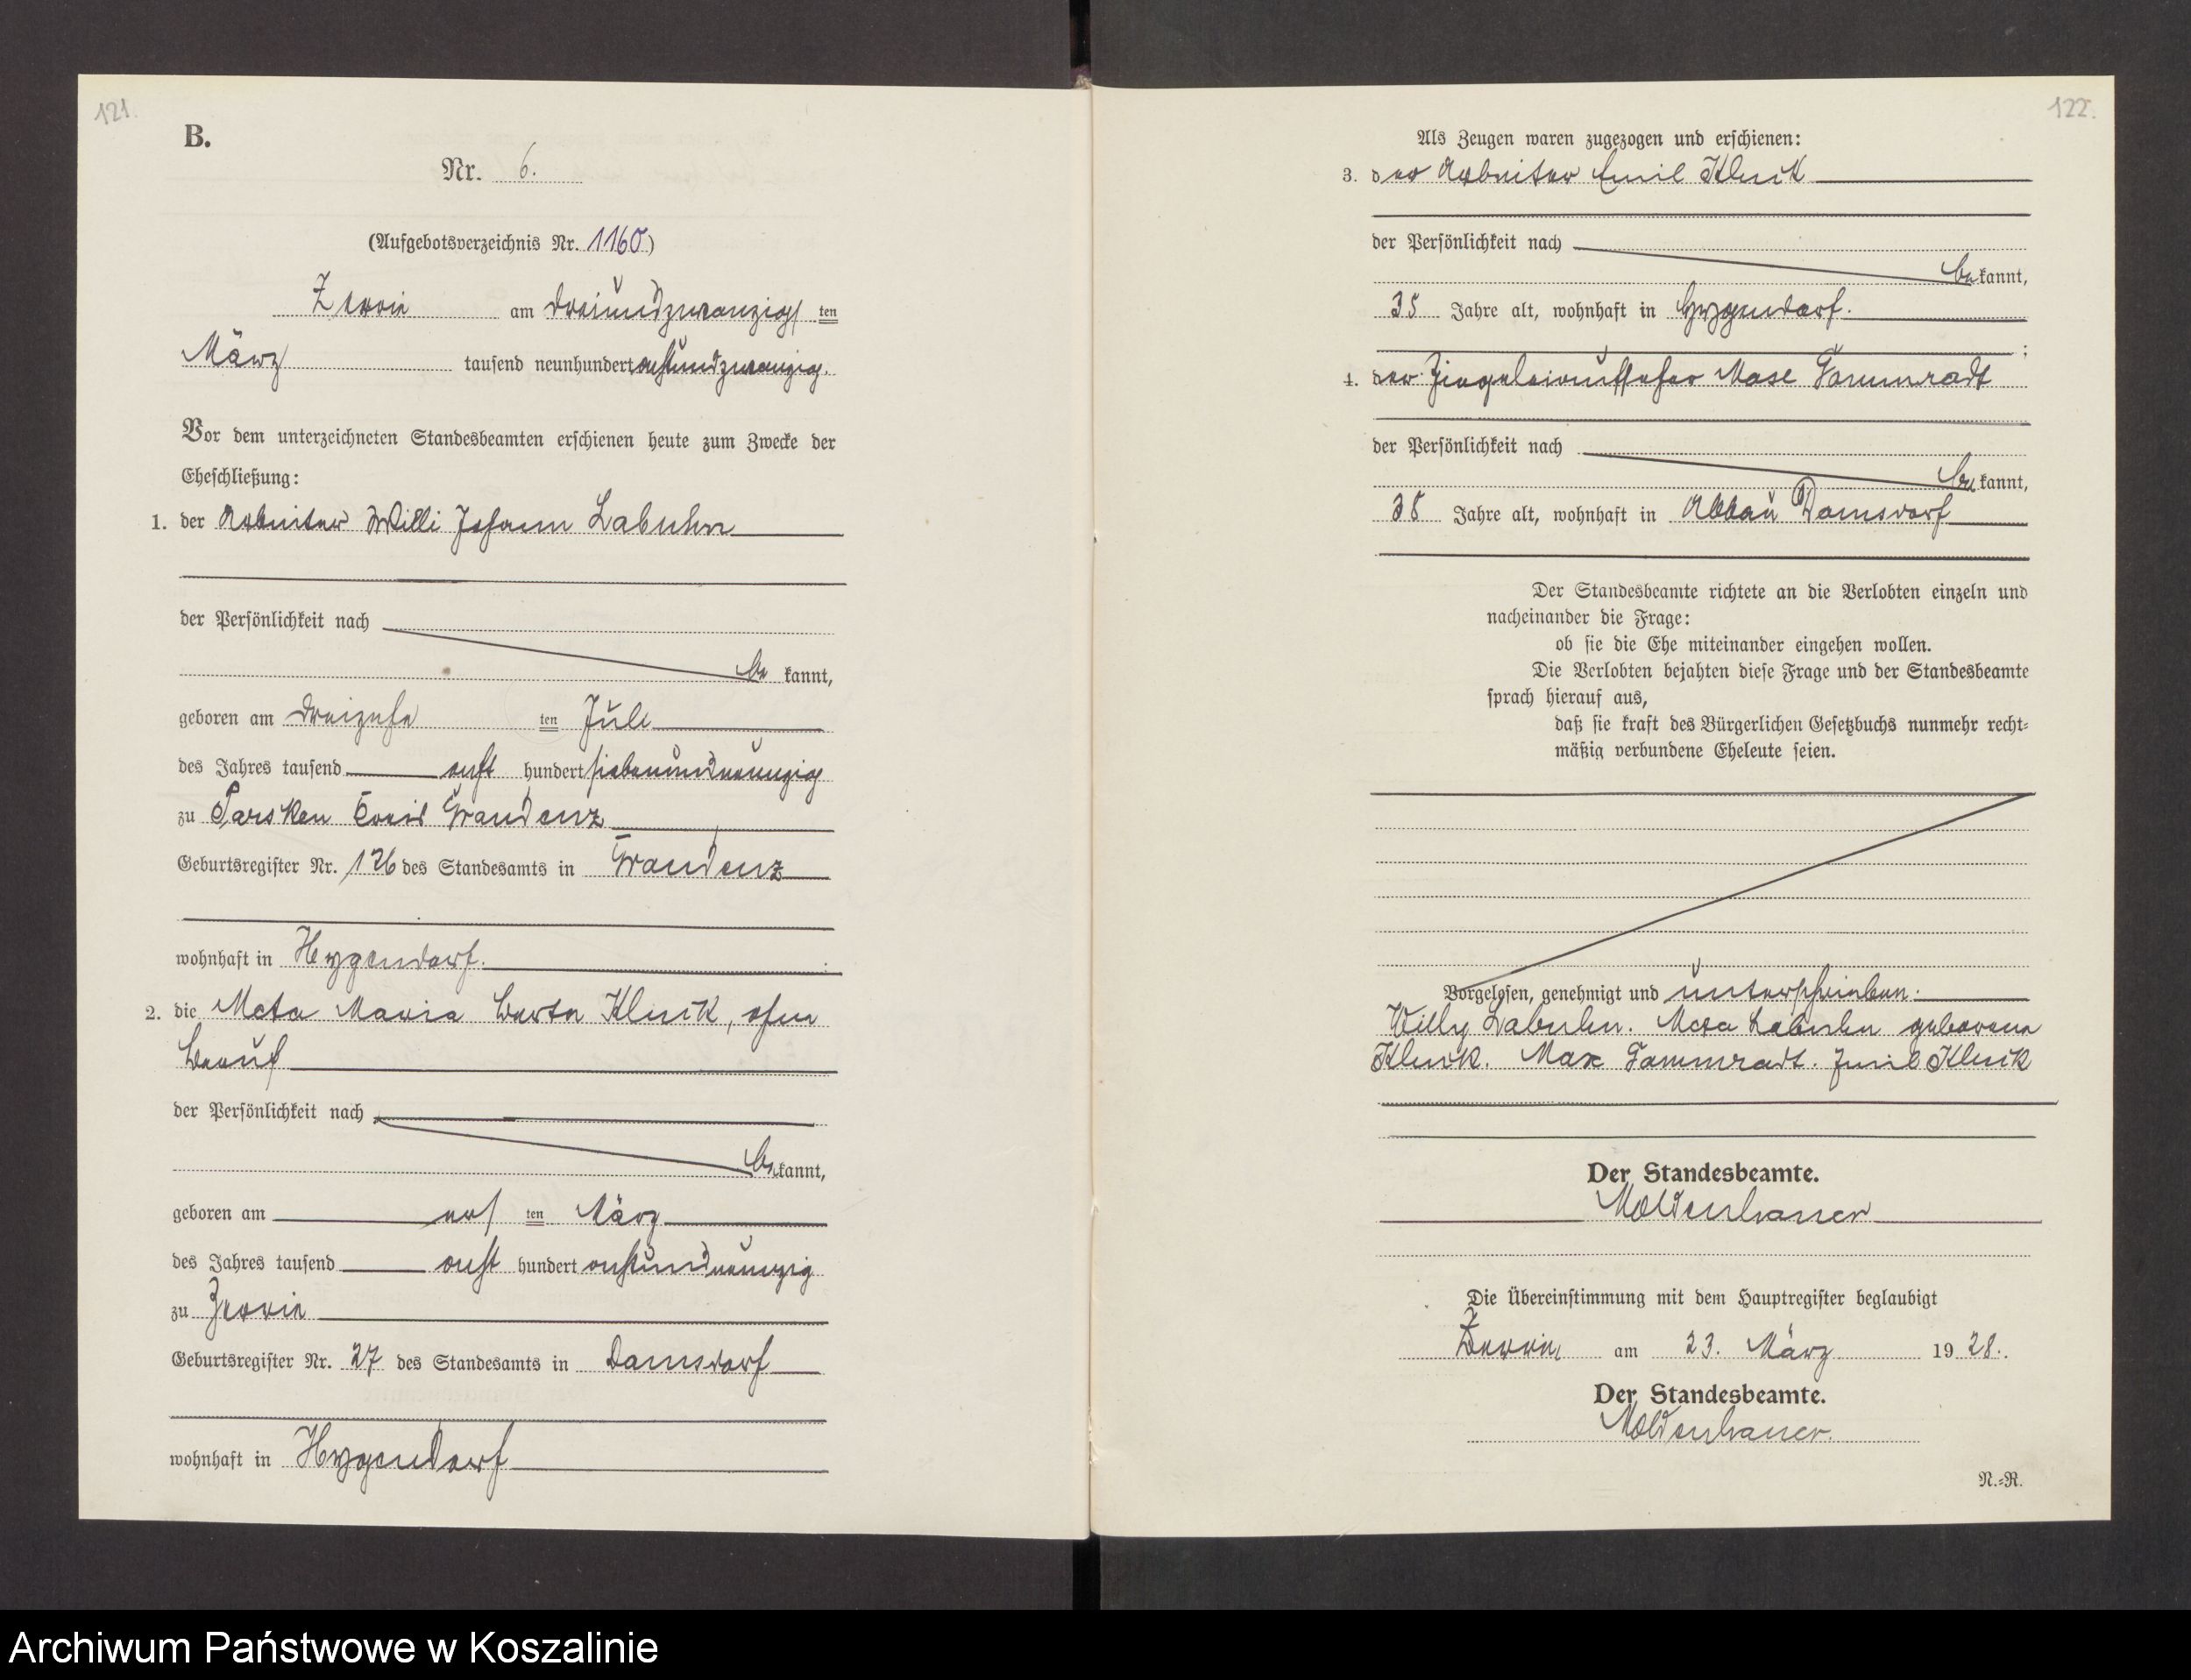 121.
B.
Nr. 6.
(Aufgebotsverzeichnis Nr. 1160)
Zerrin am dreiundzwanzigsten
März tausend neunhundert achtundzwanzig.
Vor dem unterzeichneten Standesbeamten erschienen heute zum Zwecke der
Eheschließung:
1. der Arbeiter Willi Johann Labuhn
der Persönlichkeit nach
bekannt,
geboren am dreizehnten Juli
des Jahres tausend acht hundert siebenundneunzig
zu Parsken Kreis Graudenz
Geburtsregister Nr. 126 des Standesamts in Graudenz
wohnhaft in Hygendorf.
2. die Meta Maria Berta Kluck, ohne
Beruf
der Persönlichkeit nach
bekannt,
geboren am ten März
des Jahres tausend acht hundert achtundneunzig
zu Zerrin
Geburtsregister Nr. 27 des Standesamts in Damsdorf
wohnhaft in Hygendorf
122.
Als Zeugen waren zugezogen und erschienen:
3. der Arbeiter Emil Kluck
der Persönlichkeit nach
bekannt,
35 Jahre alt, wohnhaft in Hygendorf.
;
4. der Ziegeleiaufseher Max Tammradt
der Persönlichkeit nach
bekannt,
38 Jahre alt, wohnhaft in Abbau Damsdorf
Der Standesbeamte richtete an die Verlobten einzeln und
nacheinander die Frage:
ob sie die Ehe miteinander eingehen wollen.
Die Verlobten bejahten diese Frage und der Standesbeamte
sprach hierauf aus,
daß sie kraft des Bürgerlichen Gesetzbuchs nunmehr recht-
mäßig verbundene Eheleute seien.
Vorgelesen, genehmigt und unterschrieben.
Willy Labuhn. Meta Labuhn geborene
Kluck. Max Tammradt. Emil Kluck
Der Standesbeamte.
Moldenhauer
Die Übereinstimmung mit dem Hauptregister beglaubigt
Zerrin, am 23. März 1928.
Der Standesbeamte.
Moldenhauer.
N.-R.
Archiwum Państwowe w Koszalinie